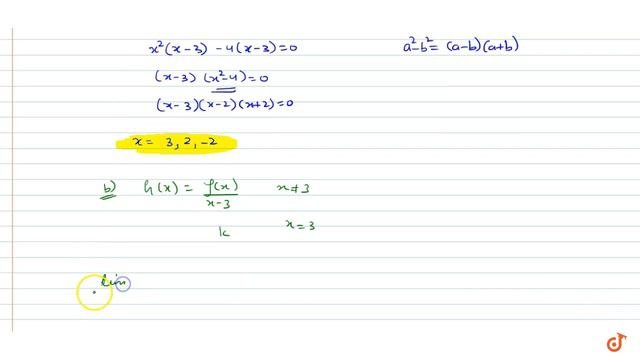 x²(x-3) -4(x-3)=0 a²-b²= (a-b)(a+b)
(x-3) (x²-4)=0
(x-3)(x-2)(x+2)=0
x= 3, 2, -2
b) h(x) = f(x)/(x-3) x≠3
k x=3
lim